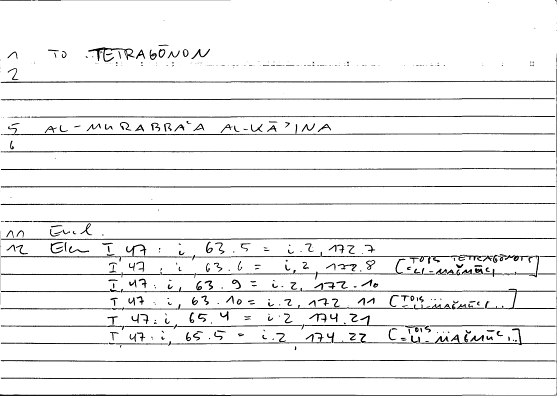 1 TO TETRAGŌNON
2
5 AL-MURABBAʿA AL-KĀʾINA
6
11 Eucl.
12 Elem I, 47 : i, 63.5 = i.2, 172.7
I, 47 : i, 63.6 = i, 2, 172.8 [TOIS TETRAGŌNOIS = LI-MAǦMŪʿI...]
I, 47 : i, 63.9 = i.2, 172.10
I, 47 : i, 63.10 = i.2, 172.11 [TOIS ... = LI-MAǦMŪʿI...]
I, 47 : i, 65.4 = i.2, 174.21
I, 47 : i, 65.5 = i.2, 174.22 [TOIS ... = LI-MAǦMŪʿI...]